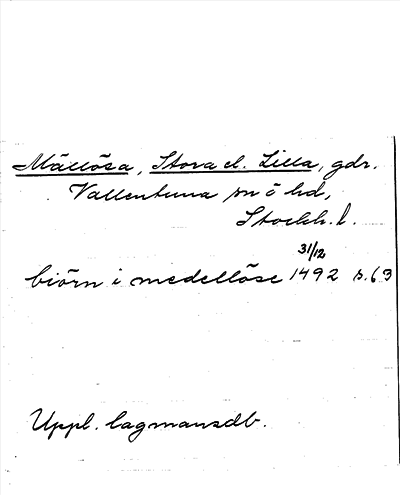 Mällösa, Stora el. Lilla, gdr.
Vallentuna sn o hd,
Stockh. l.
31/12
biörn i medellöse 1492 s. 63
Uppl. lagmansdb.